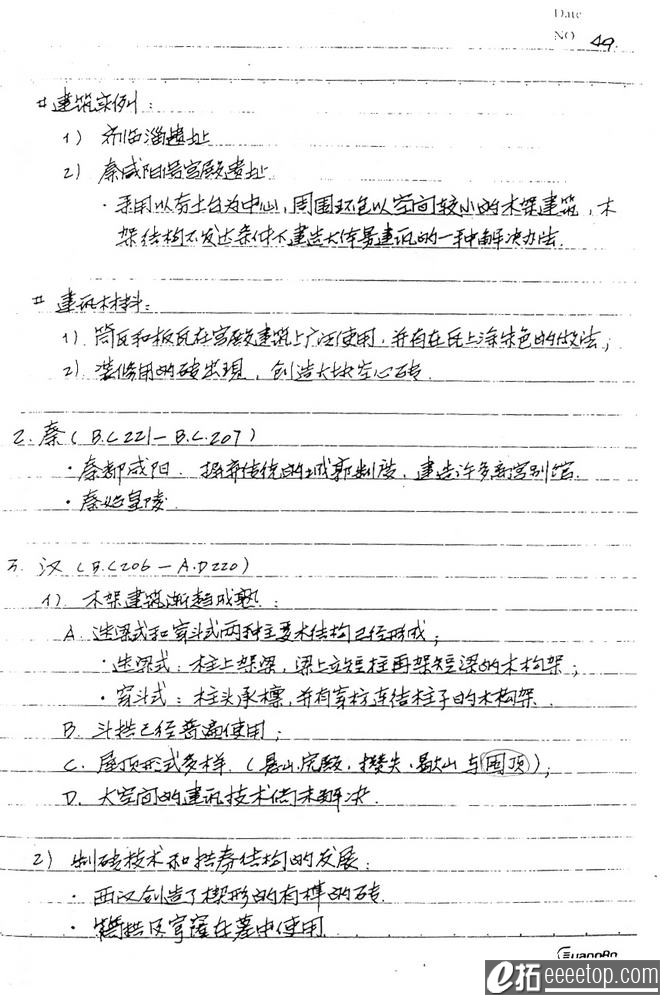 Date
NO 49.
# 建筑实例：
1) 齐临淄遗址
2) 秦咸阳宫殿遗址.
· 采用以夯土台为中心，周围环包以空间较小的木架建筑，木
架结构不发达条件下建造大体量建筑的一种解决办法.
# 建筑材料：
1) 筒瓦和板瓦在宫殿建筑上广泛使用，并有在瓦上涂朱色的做法；
2) 装修用的砖出现，创造大块空心砖.
2. 秦 (B.C 221 — B.C. 207)
· 秦都咸阳. 摒弃传统的城郭制度，建造许多离宫别馆.
· 秦始皇陵
3. 汉 (B.C 206 — A.D 220)
1) 木架建筑渐趋成熟：
A. 迭梁式和穿斗式两种主要木结构已经形成；
· 迭梁式：柱上架梁，梁上立短柱再架短梁的木构架；
· 穿斗式：柱头承檩，并有穿枋连结柱子的木构架.
B. 斗拱已经普遍使用；
C. 屋顶形式多样. (悬山. 庑殿. 攒尖. 歇山 与 囤顶)；
D. 大空间的建筑技术尚未解决.
2) 制砖技术和拱券结构的发展：
· 西汉创造了楔形的有榫的砖.
· 拱及穹窿在墓中使用.
GuangBo
e拓 eeeetop.com